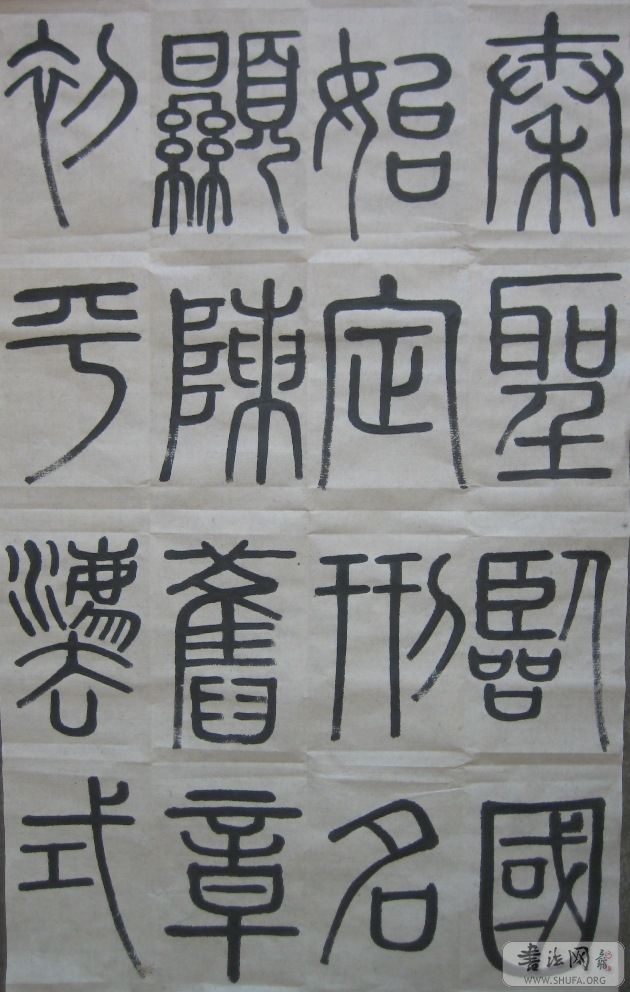 秦聖臨國
始定刑名
顯陳舊章
初平灋式
書法网
WWW.SHUFA.ORG